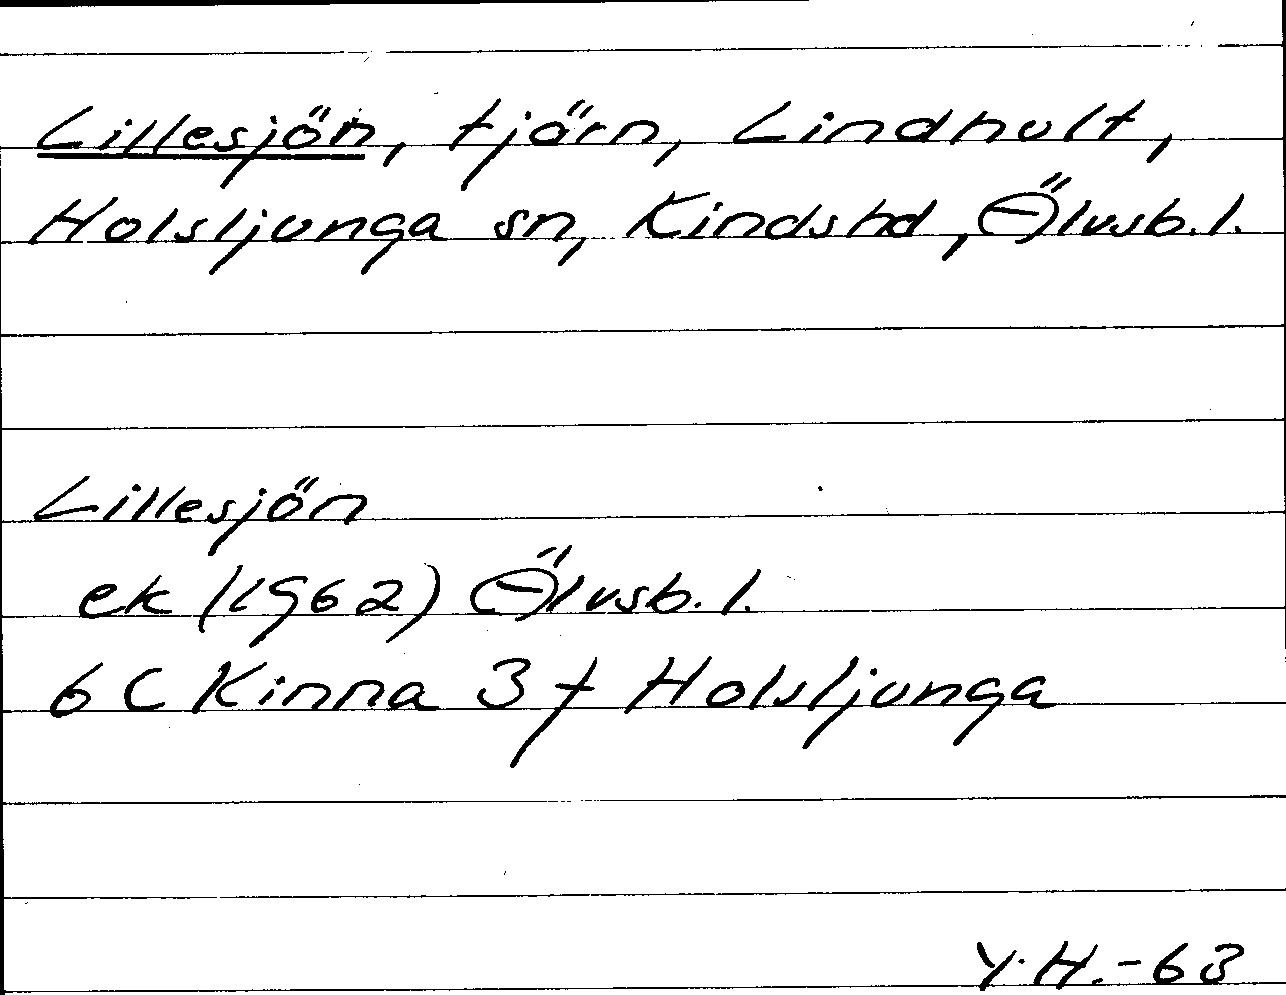 Lillesjön, tjärn, Lindhult,
Holsljunga sn, Kinds hd, Älvsb. l.
Lillesjön
ek (1962) Älvsb. l.
6 C Kinna 3 f Holsljunga
Y. H. - 63